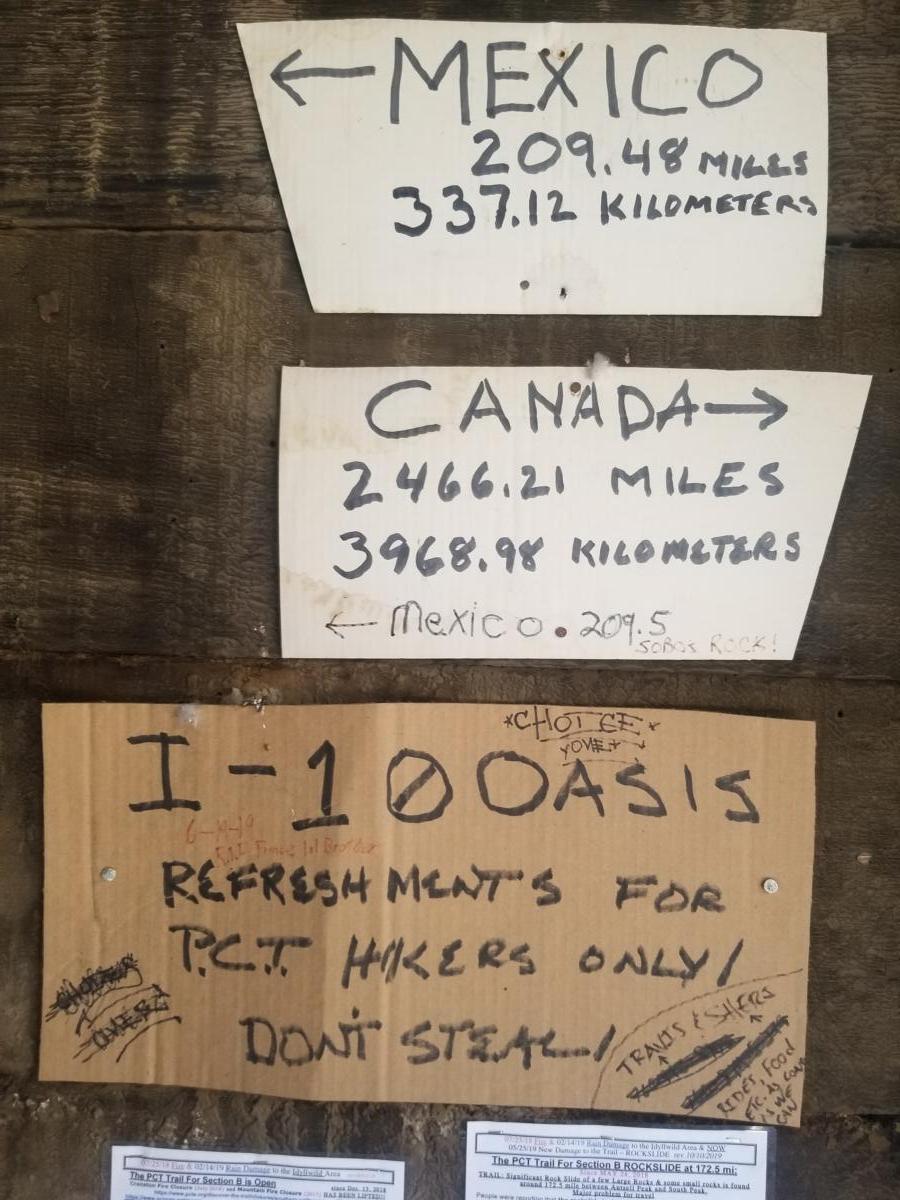 ← MEXICO
209.48 MILES
337.12 KILOMETERS
CANADA →
2466.21 MILES
3968.98 KILOMETERS
← Mexico • 209.5
SOBOS ROCK!
*CHOICE*
I-10 OASIS
6-19-19
REFRESHMENTS FOR
P.C.T. HIKERS ONLY!
DON'T STEAL!
TRAVIS & SHERS
RIDES, FOOD
07/25/18 Fire & 02/14/19 Rain Damage to the Idyllwild Area
The PCT Trail For Section B is Open
since Dec. 13, 2018
HAS BEEN LIFTED!
07/25/18 Fire & 02/14/19 Rain Damage to the Idyllwild Area & NOW
05/25/19 New Damage to the Trail – ROCKSLIDE rev 10/10/2019
The PCT Trail For Section B ROCKSLIDE at 172.5 mi:
Since MAY 24, 2019
TRAIL: Significant Rock Slide of a few Large Rocks & some small rocks is found
around 172.5 mile between Antsell Peak and South Peak.
Major problem for travel